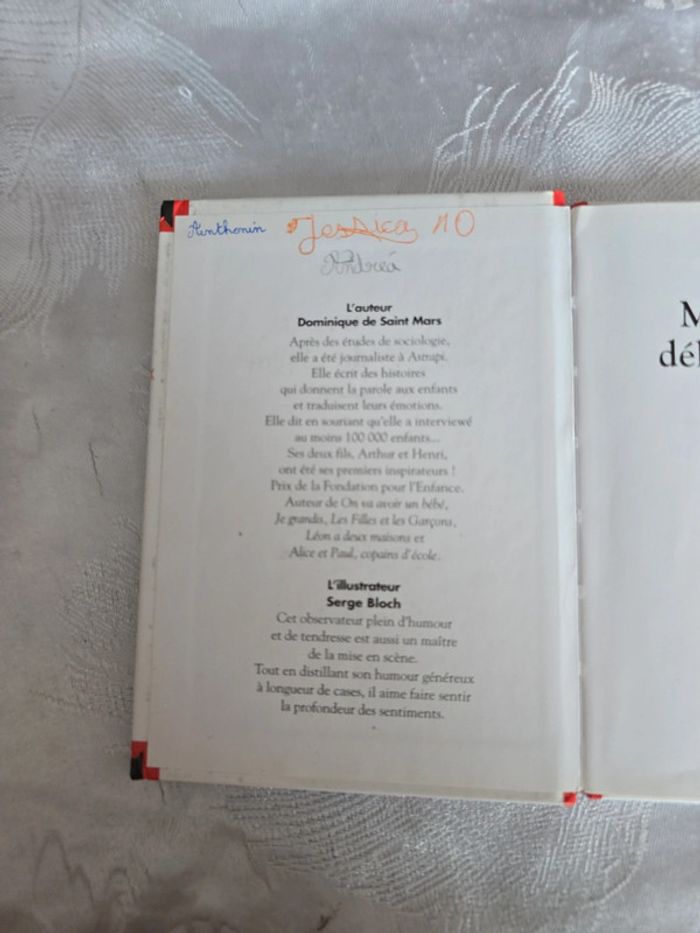 Anthonin Jessica NO
Andréa
L'auteur
Dominique de Saint Mars
Après des études de sociologie,
elle a été journaliste à Astrapi.
Elle écrit des histoires
qui donnent la parole aux enfants
et traduisent leurs émotions.
Elle dit en souriant qu'elle a interviewé
au moins 100 000 enfants...
Ses deux fils, Arthur et Henri,
ont été ses premiers inspirateurs !
Prix de la Fondation pour l'Enfance.
Auteur de On va avoir un bébé,
Je grandis, Les Filles et les Garçons,
Léon a deux maisons et
Alice et Paul, copains d'école.
L'illustrateur
Serge Bloch
Cet observateur plein d'humour
et de tendresse est aussi un maître
de la mise en scène.
Tout en distillant son humour généreux
à longueur de cases, il aime faire sentir
la profondeur des sentiments.
M
dé